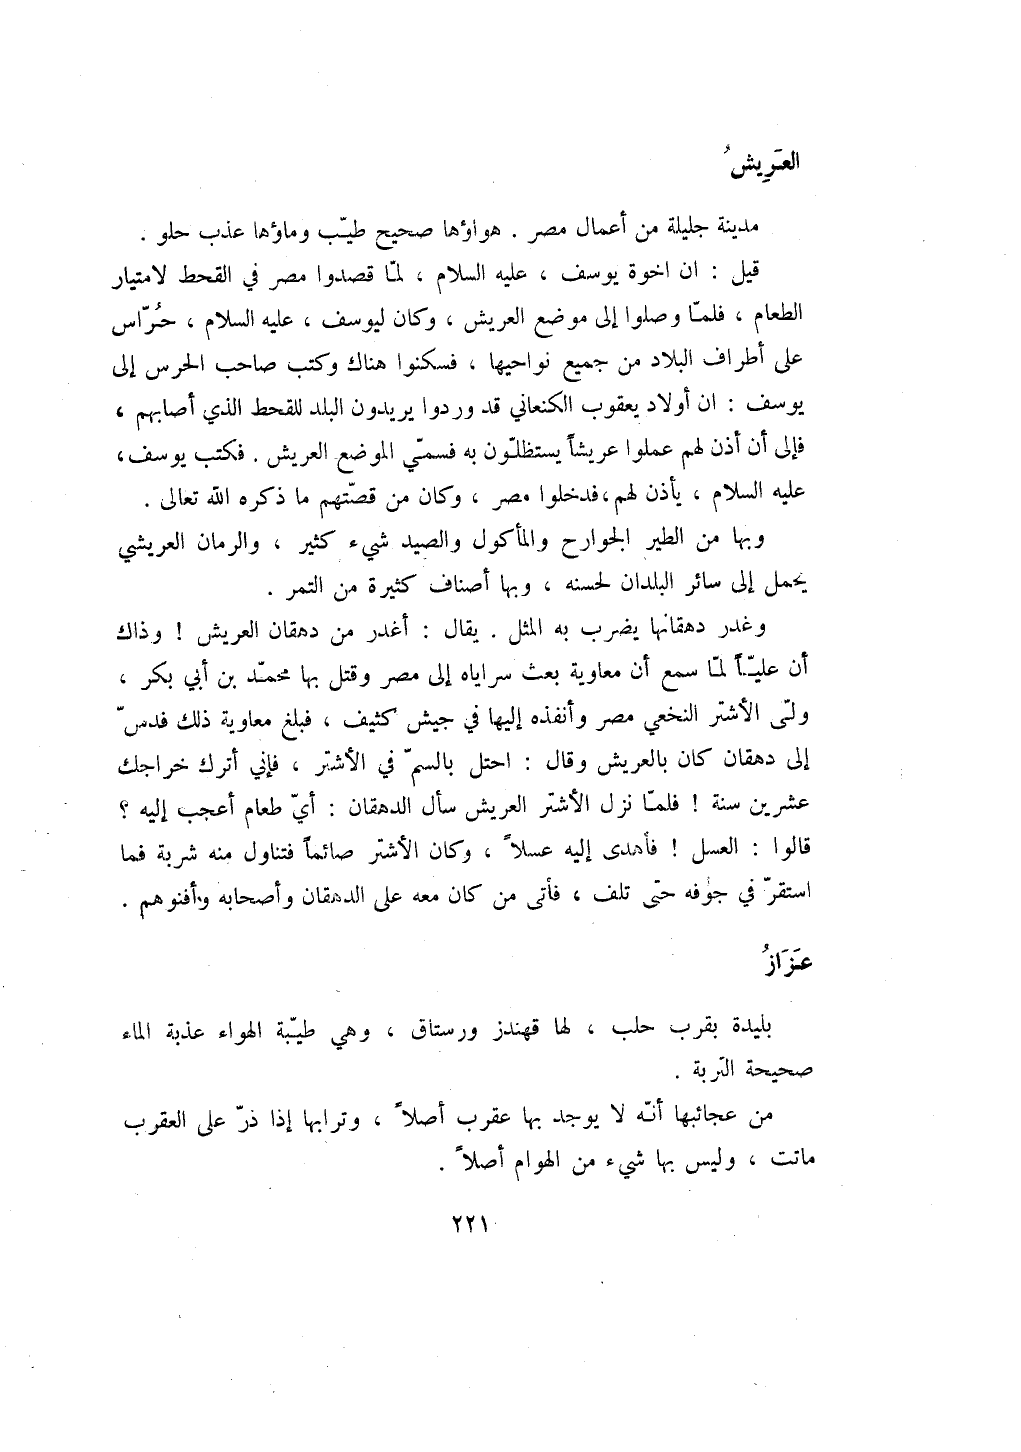 العَرِيشُ
مدينة جليلة من أعمال مصر . هواؤها صحيح طيّب وماؤها عذب حلو .
قيل : ان اخوة يوسف ، عليه السلام ، لمّا قصدوا مصر في القحط لامتيار
الطعام ، فلمّا وصلوا إلى موضع العريش ، وكان ليوسف ، عليه السلام ، حُرّاس
على أطراف البلاد من جميع نواحيها ، فسكنوا هناك وكتب صاحب الحرس إلى
يوسف : ان أولاد يعقوب الكنعاني قد وردوا يريدون البلد للقحط الذي أصابهم ،
فإلى أن أذن لهم عملوا عريشاً يستظلّون به فسمّي الموضع العريش . فكتب يوسف ،
عليه السلام ، يأذن لهم ، فدخلوا مصر ، وكان من قصّتهم ما ذكره الله تعالى .
وبها من الطير الجوارح والمأكول والصيد شيء كثير ، والرمان العريشي
يحمل إلى سائر البلدان لحسنه ، وبها أصناف كثيرة من التمر .
وغدر دهقانها يضرب به المثل . يقال : أغدر من دهقان العريش ! وذاك
أن عليّاً لمّا سمع أن معاوية بعث سراياه إلى مصر وقتل بها محمّد بن أبي بكر ،
ولّى الأشتر النخعي مصر وأنفذه إليها في جيش كثيف ، فبلغ معاوية ذلك فدسّ
إلى دهقان كان بالعريش وقال : احتل بالسمّ في الأشتر ، فإني أترك خراجك
عشرين سنة ! فلمّا نزل الأشتر العريش سأل الدهقان : أيّ طعام أعجب إليه ؟
قالوا : العسل ! فأهدى إليه عسلاً ، وكان الأشتر صائماً فتناول منه شربة فما
استقرّ في جوفه حتّى تلف ، فأتى من كان معه على الدهقان وأصحابه وأفنوهم .
عَزَازُ
بليدة بقرب حلب ، لها قهندز ورستاق ، وهي طيّبة الهواء عذبة الماء
صحيحة التربة .
من عجائبها أنّه لا يوجد بها عقرب أصلاً ، وترابها إذا ذرّ على العقرب
ماتت ، وليس بها شيء من الهوام أصلاً .
٢٢١